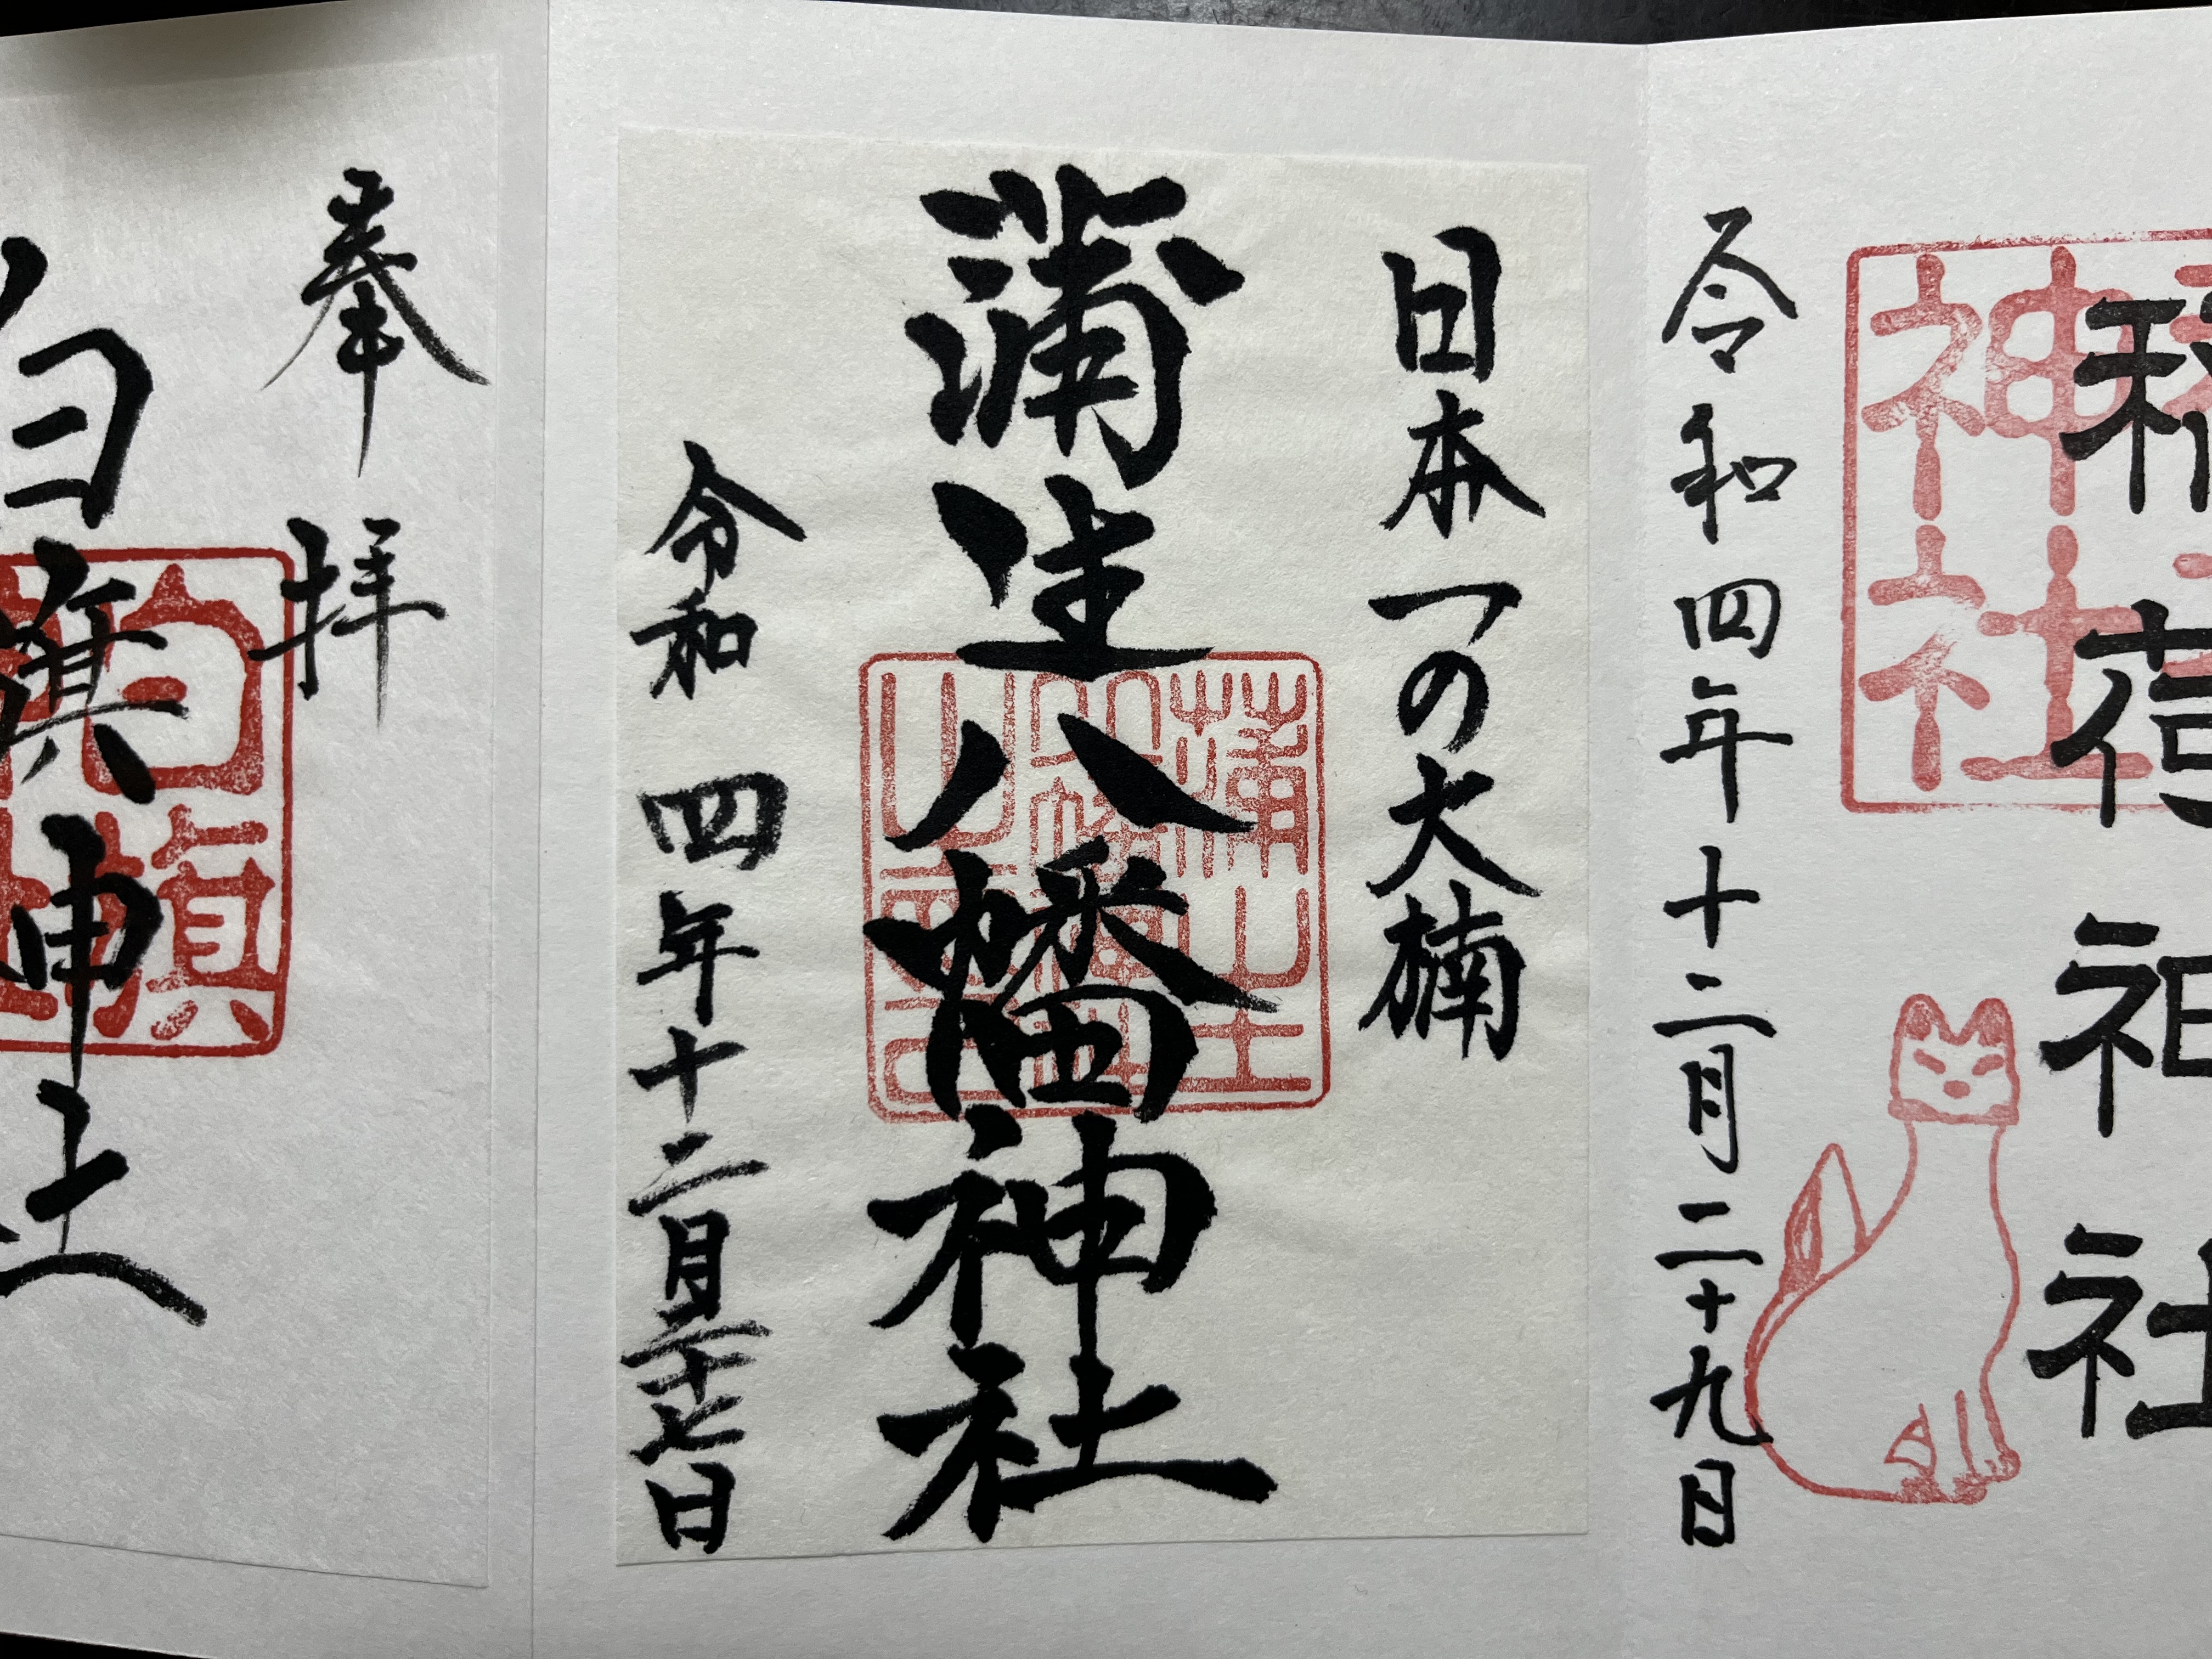 令和四年十二月二十九日
日本一の大楠
蒲生八幡神社
令和四年十二月二十七日
奉拝
白旗神社